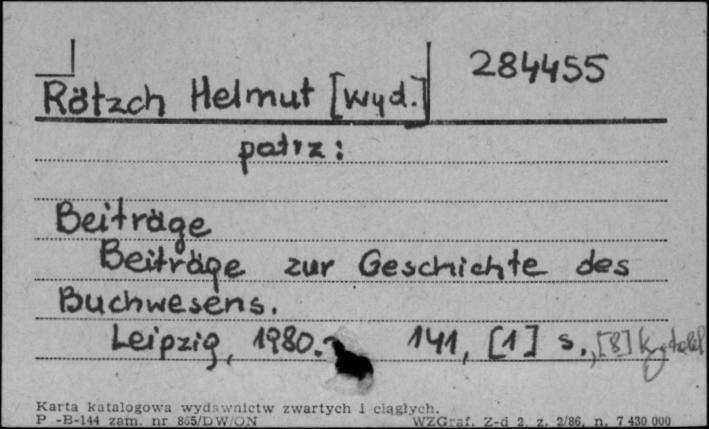 284455
Rötzch Helmut [wyd.]
patrz:
Beiträge
Beiträge zur Geschichte des
Buchwesens.
Leipzig, 1980. 141, [1] s., [8] k.
Karta katalogowa wydawnictw zwartych i ciągłych.
P -B-144 zam. nr 865/DW/ON WZGraf. Z-d 2, z. 2/86, n. 7 430 000